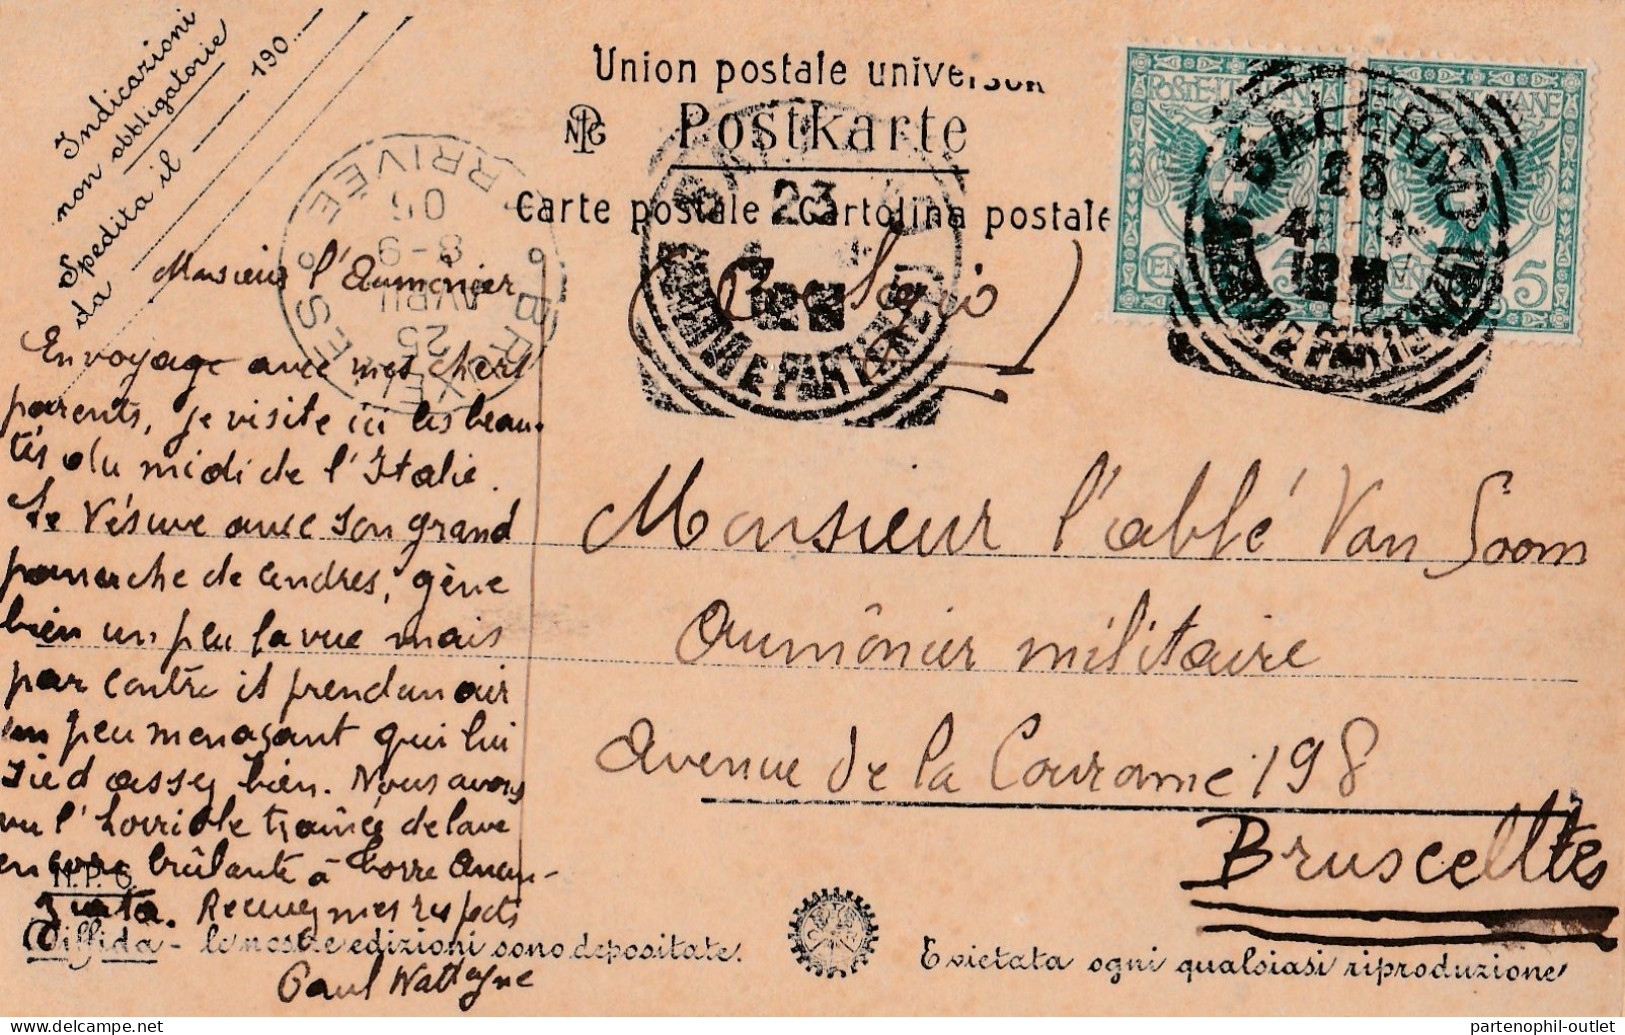 Indicazioni
non obbligatorie
Spedita il 190
da
Union postale univer
NPG Postkarte
Carte postale Cartolina postale
SALERNO
23
FERROVIA E PARTENZE
SALERNO
POSTE ITALIANE
CENT 5
BRUXELLES
ARRIVÉE
25
AVRIL
8-9
06
(Belgio)
Monsieur l'Aumônier
En voyage avec mes chers
parents, je visite ici les beau-
tés du midi de l'Italie.
Le Vésuve avec son grand
panache de cendres, gène
bien un peu la vue mais
par contre il prend un air
un peu menaçant qui lui
sied assez bien. Nous avons
vu l'horrible traînée de lave
encore brûlante à Torre Anun-
ziata. Recevez mes respects
Paul Wattayne
Monsieur l'abbé Van Soom
Aumônier militaire
Avenue de la Couronne 198
Bruscelltes
N.P.G.
Diffida - le nostre edizioni sono depositate. E vietata ogni qualsiasi riproduzione
partenophil-outlet